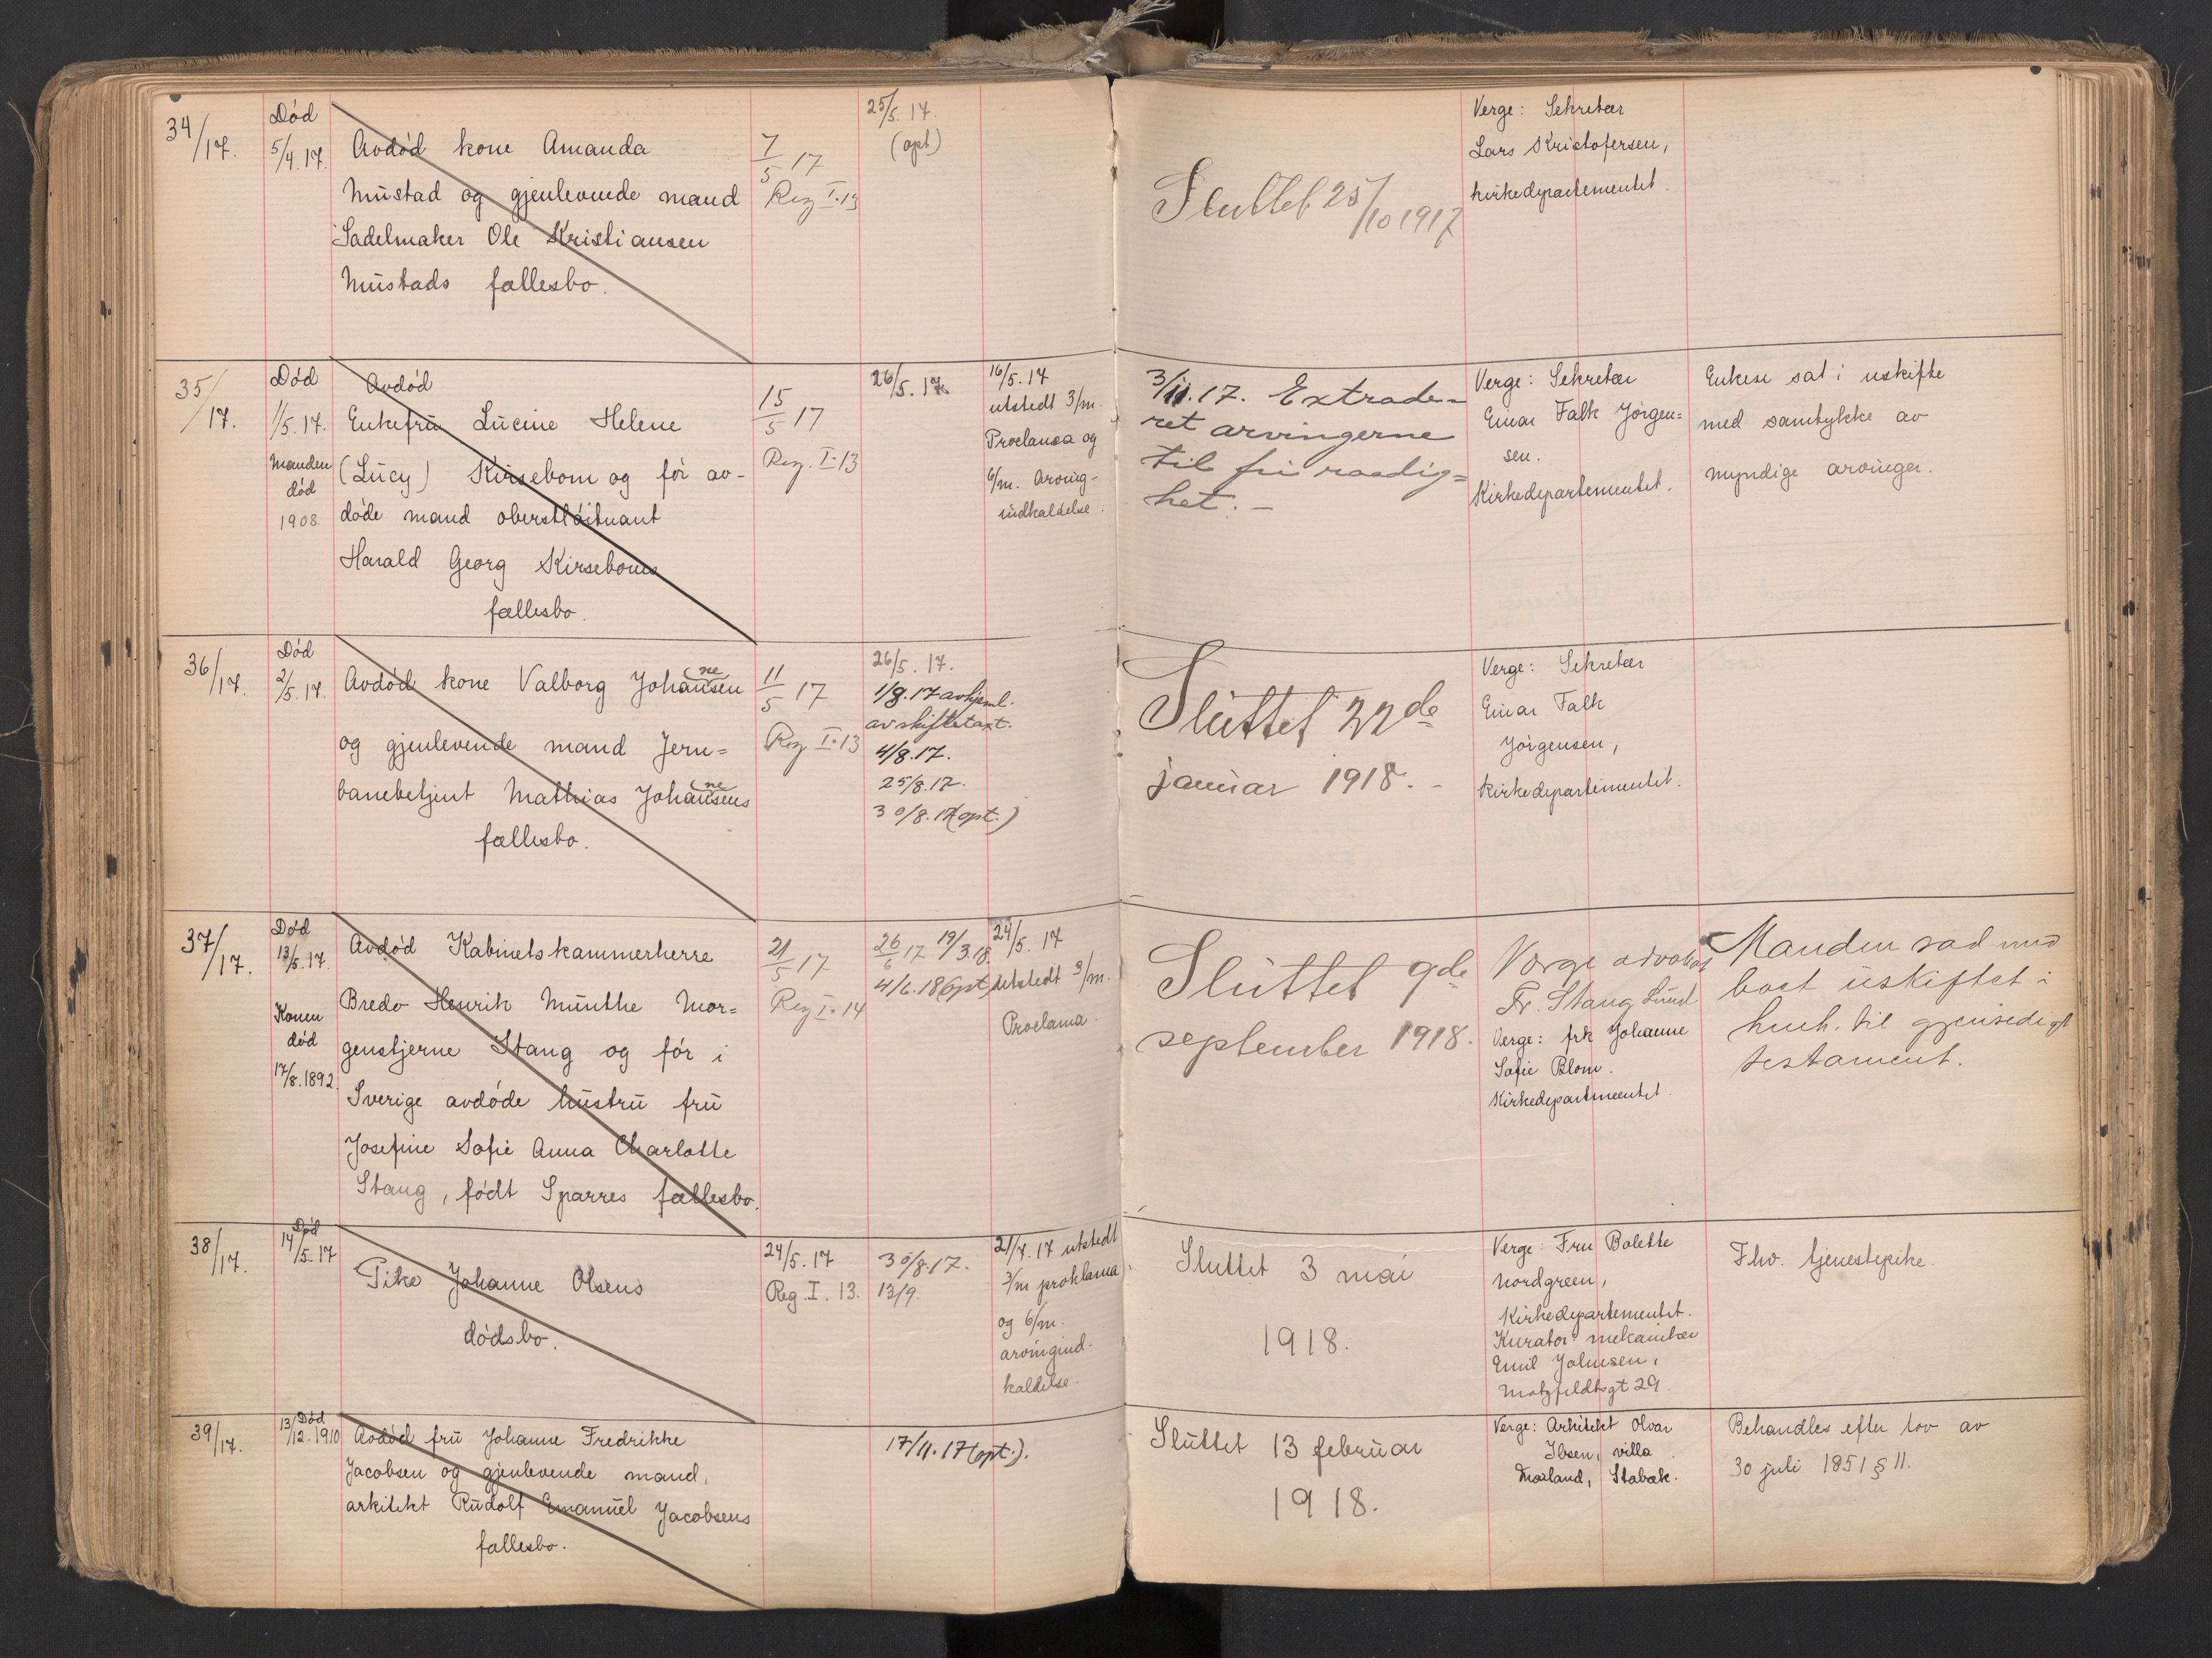 34/17.
Død
5/4.17.
Avdød kone Amanda
Mustad og gjenlevende mand
Sadelmaker Ole Kristiansen
Mustads fællesbo.
7/5 17
Reg I.13
25/5.17.
(opt)
Sluttet 25/10 1917
Verge: Sekretær
Lars Kristofersen,
kirkedepartementet.
35/17.
Død
1/5.17.
Manden
død
1908.
Avdød
Enkefru Lucine Helene
(Lucy) Kirsebom og før av-
døde mand oberstløitnant
Harald Georg Kirseboms
fællesbo.
15/5 17
Reg. I.13
26/5.17.
16/5.17
utstedt 3/m.
Proclama og
6/m. Arving-
indkaldelse.
3/11.17. Extrade-
ret arvingerne
til fri raadig=
het. -
Verge: Sekretær
Einar Falk Jørgen=
sen.
Kirkedepartementet.
Enken sat i uskifte
med samtykke av
myndige arvinger.
36/17.
Død
2/5.17.
Avdød kone Valborg Johansen
ne
og gjenlevende mand Jern=
banebetjent Mathias Johansens
ne
fællesbo.
11/5 17
Reg I.13
26/5.17.
1/8.17 avhjeml.
av skiftetaxt.
4/8.17.
25/8.17.
30/8.17 (opt.)
Sluttet 22de
januar 1918. -
Verge: Sekretær
Einar Falk
Jørgensen,
kirkedepartementet.
37/17.
Død
13/5.17.
Konen
død
17/8.1892.
Avdød Kabinetskammerherre
Bredo Henrik Munthe Mor=
genstjerne Stang og før i
Sverige avdøde hustru fru
Josefine Sofie Anna Charlotte
Stang, født Sparres fællesbo.
21/5 17
Reg I.14
26/6 17 19/3.18.
4/6.18 (opt)
24/5.17
utstedt 3/m.
Proclama.
Sluttet 9de
september 1918.
Verge advokat
Fr. Stang Lund
Verge: frk Johanne
Sofie Blom.
Kirkedepartementet.
Manden sad med
boet uskiftet i
henh. til gjensidigt
testament.
38/17.
Død
14/5.17
Pike Johanne Olsens
dødsbo.
24/5.17
Reg. I. 13.
30/8.17.
13/9.
21/7.17 utstedt
3/m proklama
og 6/m.
arvingind-
kaldelse.
Sluttet 3 mai
1918.
Verge: Fru Bolette
Nordgreen,
Kirkedepartementet.
Kurator: mekaniker
Emil Johnsen,
Motzfeldtsgt 29.
Fhv. tjenestepike.
39/17.
Død
13/12.1910
Avdød fru Johanne Fredrikke
Jacobsen og gjenlevende mand,
arkitekt Rudolf Emanuel Jacobsens
fællesbo.
17/11.17 (opt.).
Sluttet 13 februar
1918.
Verge: Arkitekt Olvar
Ibsen, villa
Stabæk.
Behandles efter lov av
30 juli 1851 § 11.